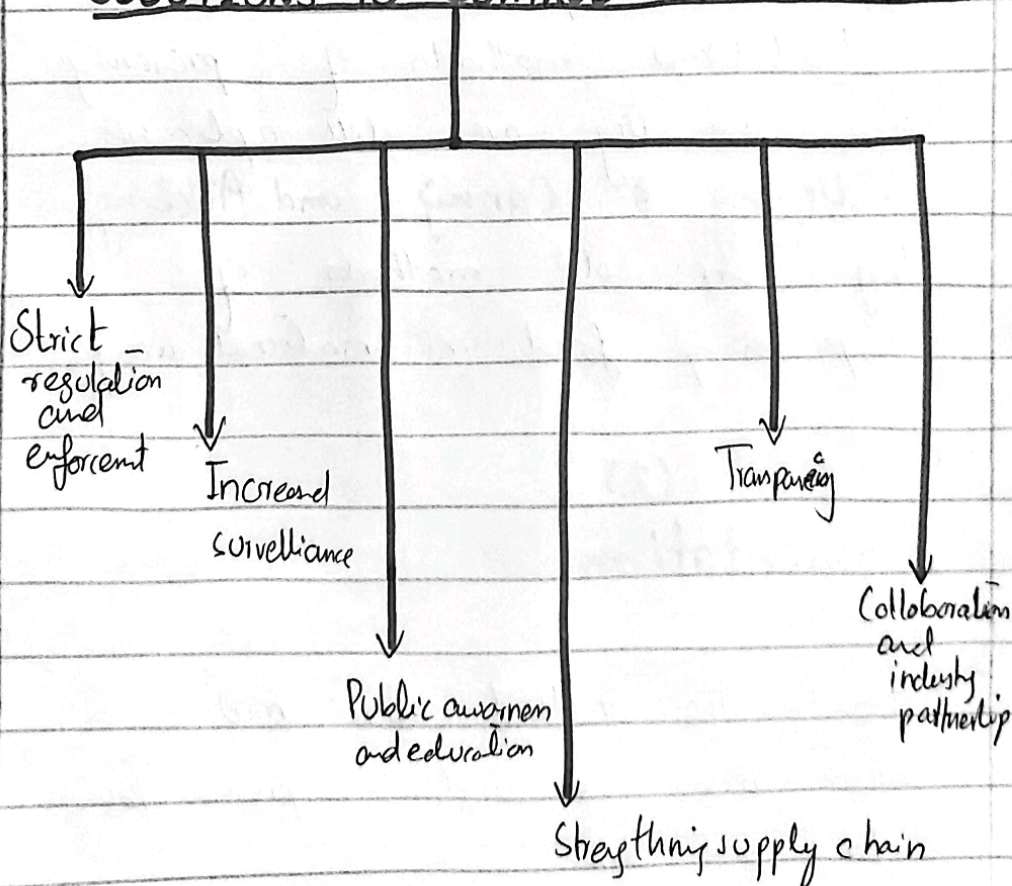 SOLUTIONS TO CONTROL
Strict
regulation
and
enforcemt
Increased
survelliance
Public awarnen
and education
Strengthning supply chain
Transparency
Collaboration
and
industy
partnership